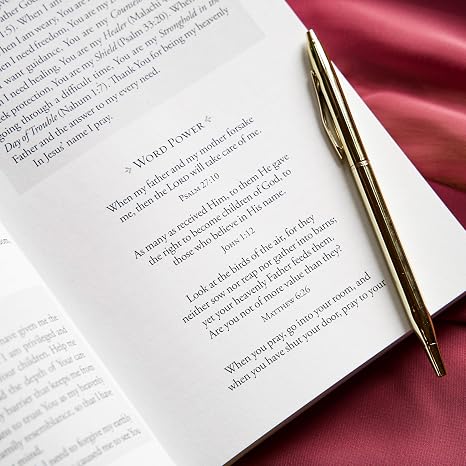 1:5). When I am weary, You are my
When I am weak, You are my
n I need freedom, You are my
want guidance, You are my Counselor
n I need healing, You are my Healer (Malachi
eek protection, You are my Shield (Psalm 33:20). When
going through a difficult time, You are my Stronghold in the
Day of Trouble (Nahum 1:7). Thank You for being my heavenly
Father and the answer to my every need.
In Jesus' name I pray.
Word Power
When my father and my mother forsake
me, then the LORD will take care of me.
Psalm 27:10
As many as received Him, to them He gave
the right to become children of God, to
those who believe in His name.
John 1:12
Look at the birds of the air, for they
neither sow nor reap nor gather into barns;
yet your heavenly Father feeds them.
Are you not of more value than they?
Matthew 6:26
When you pray, go into your room, and
when you have shut your door, pray to your
have given me the
I am privileged and
your children. Help me
and the depth of You can
barrier that keeps me from
to trust You as my heavenly
family resemblance, so that I have
I need to forgive my earthly
caused me to see You